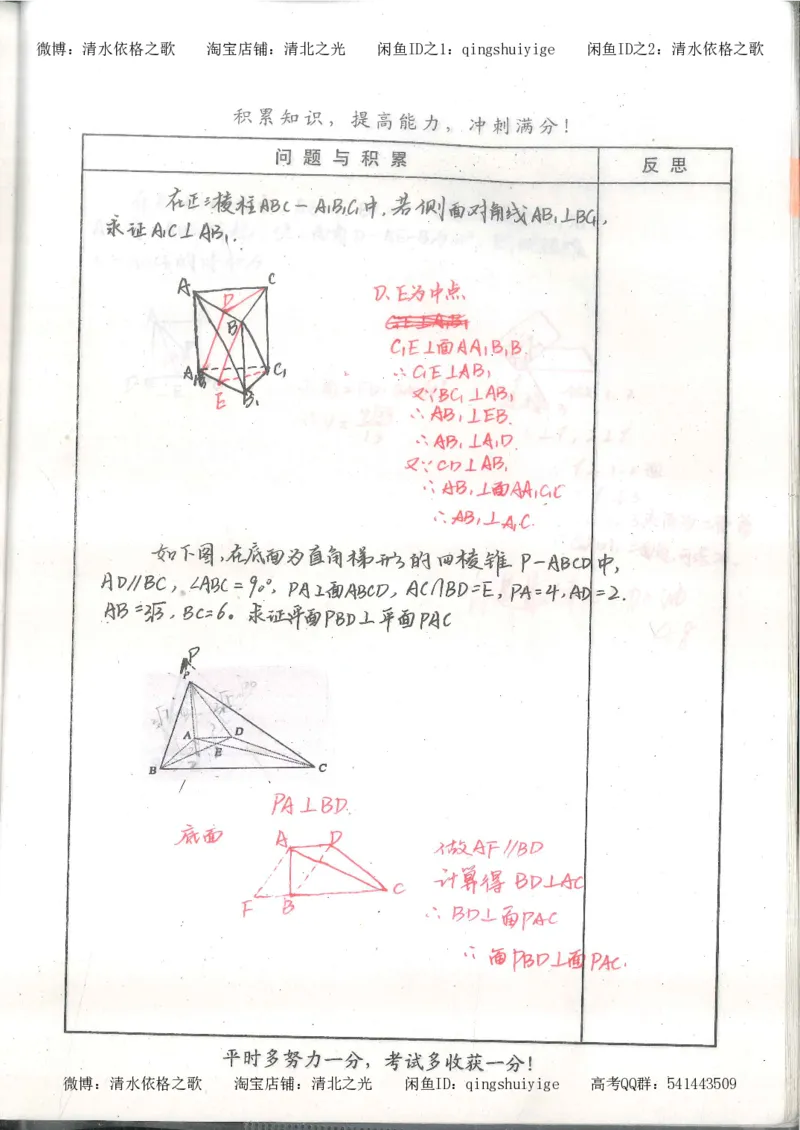 微博：清水依格之歌 淘宝店铺：清北之光 闲鱼ID之1：qingshuiyige 闲鱼ID之2：清水依格之歌
积累知识，提高能力，冲刺满分！
问题与积累 反思
在正三棱柱ABC－A₁B₁C₁中，若侧面对角线AB₁⊥BC₁，
求证A₁C⊥AB₁.
A C
D
B
A₁ C₁
E B₁
D、E为中点
C₁E⊥面AA₁B₁B.
∴C₁E⊥AB₁
又∵BC₁⊥AB₁
∴AB₁⊥EB.
∴AB₁⊥A₁D.
又∵CD⊥AB₁
∴AB₁⊥面AA₁C₁C
∴AB₁⊥A₁C.
如下图，在底面为直角梯形的四棱锥 P－ABCD中，
AD∥BC，∠ABC=90°，PA⊥面ABCD，AC∩BD=E，PA=4，AD=2.
AB=2√3，BC=6。求证平面PBD⊥平面PAC
P
P
A D
E
B C
PA⊥BD.
底面 A D
C
F B
做AF∥BD
计算得 BD⊥AC
∴BD⊥面PAC
∴面PBD⊥面PAC.
平时多努力一分，考试多收获一分！
微博：清水依格之歌 淘宝店铺：清北之光 闲鱼ID：qingshuiyige 高考QQ群：541443509